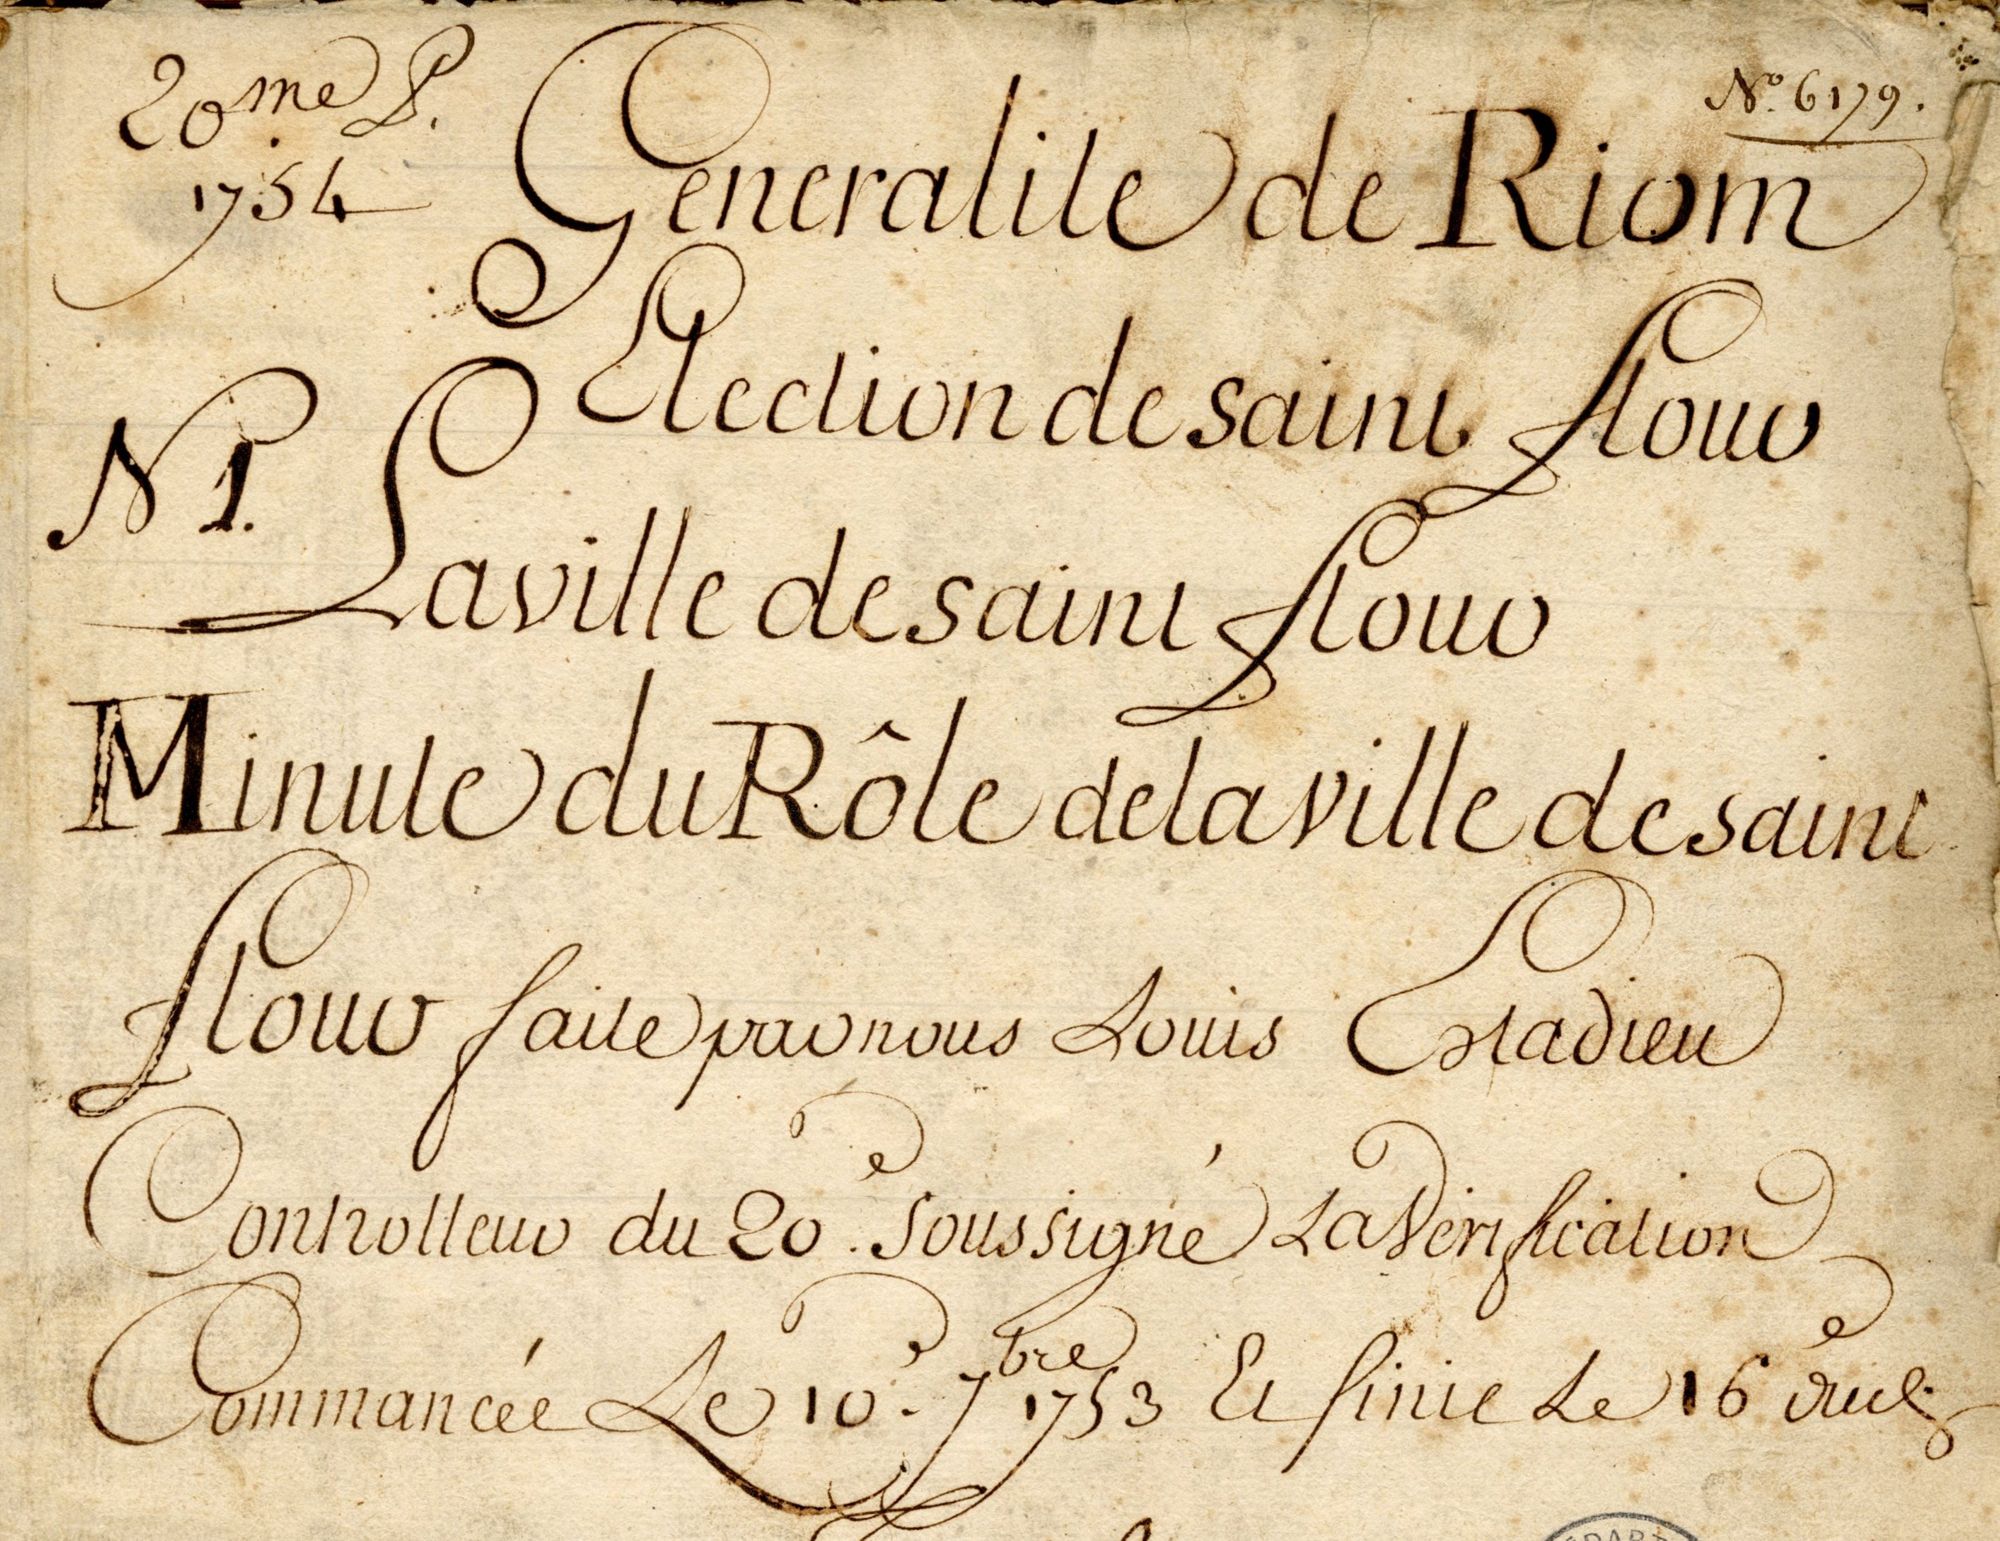 20me P.
1754
No. 6179.
Generalite de Riom
Election de saint flour
N 1.
La ville de saint flour
Minute du Rôle de la ville de saint
flour faite par nous Louis Estadieu
Controlleur du 20e. soussigné La Verification
Commancée Le 10e. 7bre 1753 Et finie Le 16e dud.
DEPART